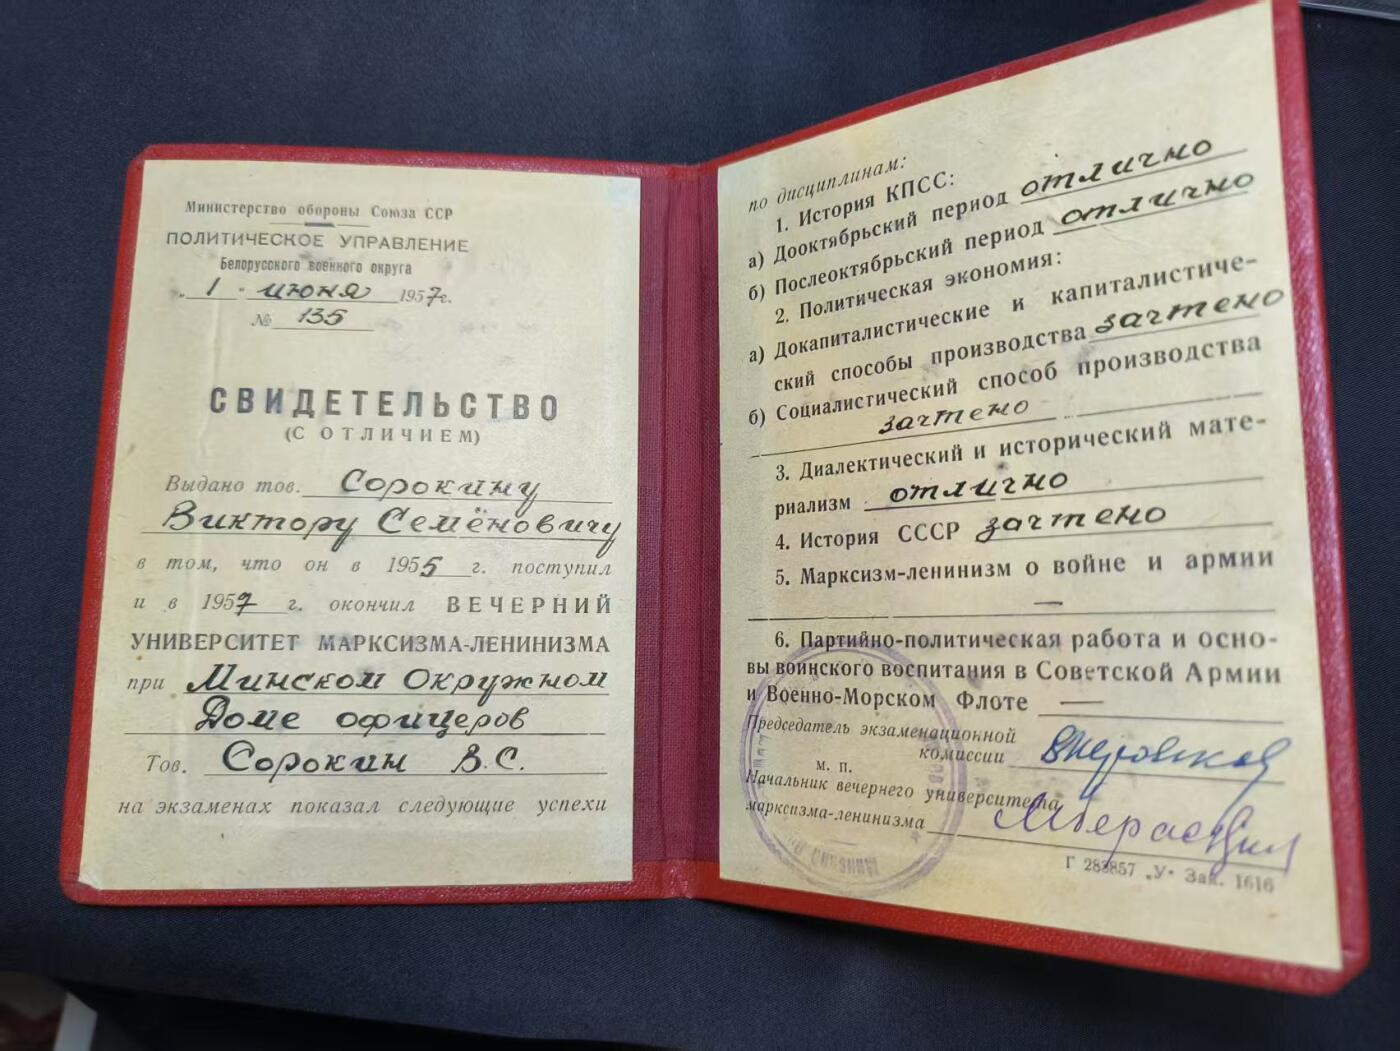 Министерство обороны Союза ССР
ПОЛИТИЧЕСКОЕ УПРАВЛЕНИЕ
Белорусского военного округа
„ 1 " июня 1957 г.
№ 135
СВИДЕТЕЛЬСТВО
(С ОТЛИЧИЕМ)
Выдано тов. Сорокину
Виктору Семёновичу
в том, что он в 1955 г. поступил
и в 1957 г. окончил ВЕЧЕРНИЙ
УНИВЕРСИТЕТ МАРКСИЗМА-ЛЕНИНИЗМА
при Минском Окружном
Доме офицеров
Тов. Сорокин В.С.
на экзаменах показал следующие успехи
по дисциплинам:
1. История КПСС:
а) Дооктябрьский период отлично
б) Послеоктябрьский период отлично
2. Политическая экономия:
а) Докапиталистические и капиталистиче-
ский способы производства зачтено
б) Социалистический способ производства
зачтено
3. Диалектический и исторический мате-
риализм отлично
4. История СССР зачтено
5. Марксизм-ленинизм о войне и армии
—
6. Партийно-политическая работа и осно-
вы воинского воспитания в Советской Армии
и Военно-Морском Флоте —
Председатель экзаменационной
комиссии
м. п.
Начальник вечернего университета
марксизма-ленинизма
Г 283857 „У" Зак. 1616